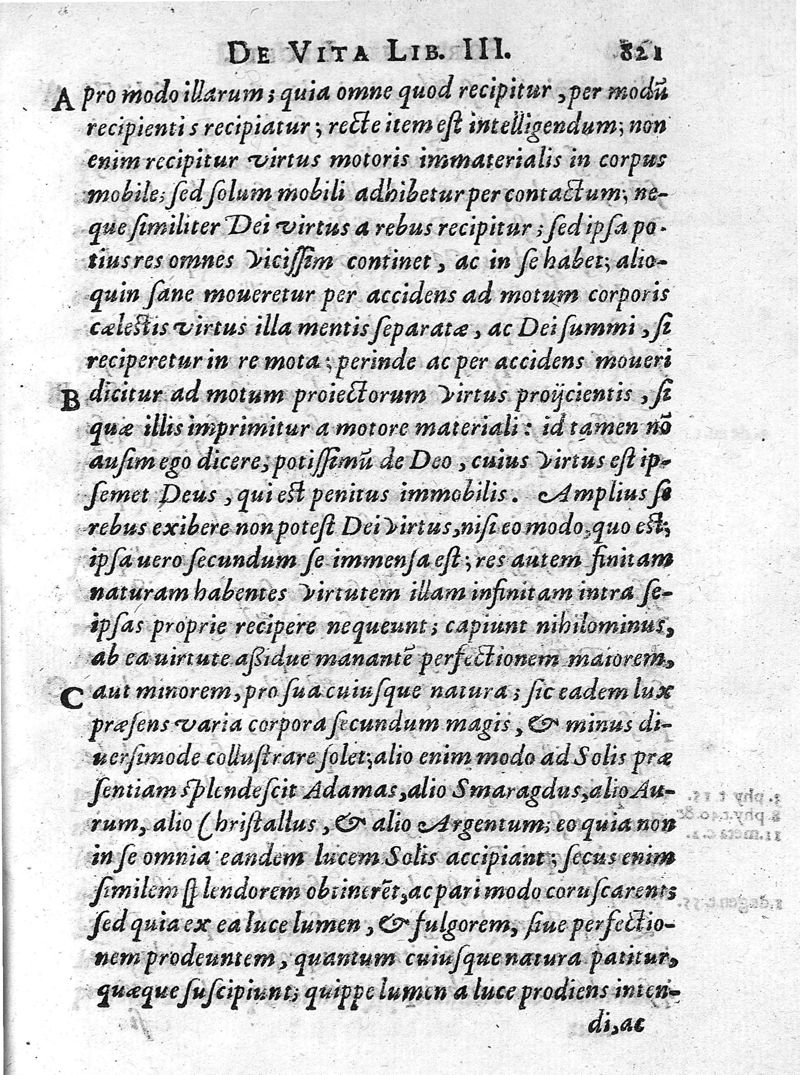 DE VITA LIB. III. 821
A pro modo illarum; quia omne quod recipitur, per modū
recipientis recipiatur; recte item est intelligendum; non
enim recipitur virtus motoris immaterialis in corpus
mobile; sed solum mobili adhibetur per contactum; ne-
que similiter Dei virtus a rebus recipitur; sed ipsa po-
tius res omnes vicissim continet, ac in se habet; alio-
quin sane moueretur per accidens ad motum corporis
cælestis virtus illa mentis separatæ, ac Dei summi, si
reciperetur in re mota; perinde ac per accidens moueri
B dicitur ad motum proiectorum virtus proijcientis, si
quæ illis imprimitur a motore materiali: id tamen nō
ausim ego dicere; potissimū de Deo, cuius virtus est ip-
semet Deus, qui est penitus immobilis. Amplius se
rebus exibere non potest Dei virtus, nisi eo modo, quo est;
ipsa uero secundum se immensa est; res autem finitam
naturam habentes virtutem illam infinitam intra se-
ipsas proprie recipere nequeunt; capiunt nihilominus,
ab ea uirtute aßidue manantē perfectionem maiorem,
C aut minorem, pro sua cuiusque natura; sic eadem lux
præsens varia corpora secundum magis, & minus di-
uersimode collustrare solet; alio enim modo ad Solis præ
sentiam splendescit Adamas, alio Smaragdus, alio Au-
rum, alio Christallus, & alio Argentum; eo quia non
in se omnia eandem lucem Solis accipiant; secus enim
similem splendorem obtinerēt, ac pari modo coruscarent;
sed quia ex ea luce lumen, & fulgorem, siue perfectio-
nem prodeuntem, quantum cuiusque natura patitur,
quæque suscipiunt; quippe lumen a luce prodiens inten-
di, ac